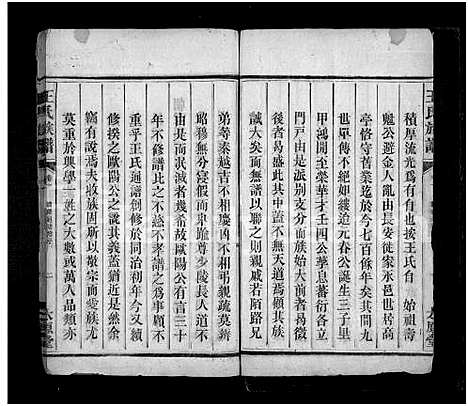 王氏族譜
積厚流光爲有自也按王氏自 始祖壽
魁公避金人亂由長安徙家桑梓里世居高
亭恪守舊業迄於今七百餘年矣其間九
世單傳不絕如綫迨元春公誕生三子里
甲鴻開英才壬四公華息蕃衍各立
門戸由是派別支分而族大焉前者易徵
後者易盛此不無天道焉顧其族
誠大矣無譜以聯之則親戚若陌路兄
弟等秦越吉不相慶凶不相弔親疏莫辨
昭穆無分寖假而卑踰尊少陵長人道不
由是而泯滅者幾希故歐陽公有言三十
年不修譜比之不慈不孝譜之爲事顧不
重乎王氏通譜創修於同治初年今又續
修揆之歐陽公之說其義蓋猶近是然余
竊有說焉夫收族固所以敬宗而愛族尤
莫重於興學一姓之大數或萬人品類亦
王氏族譜